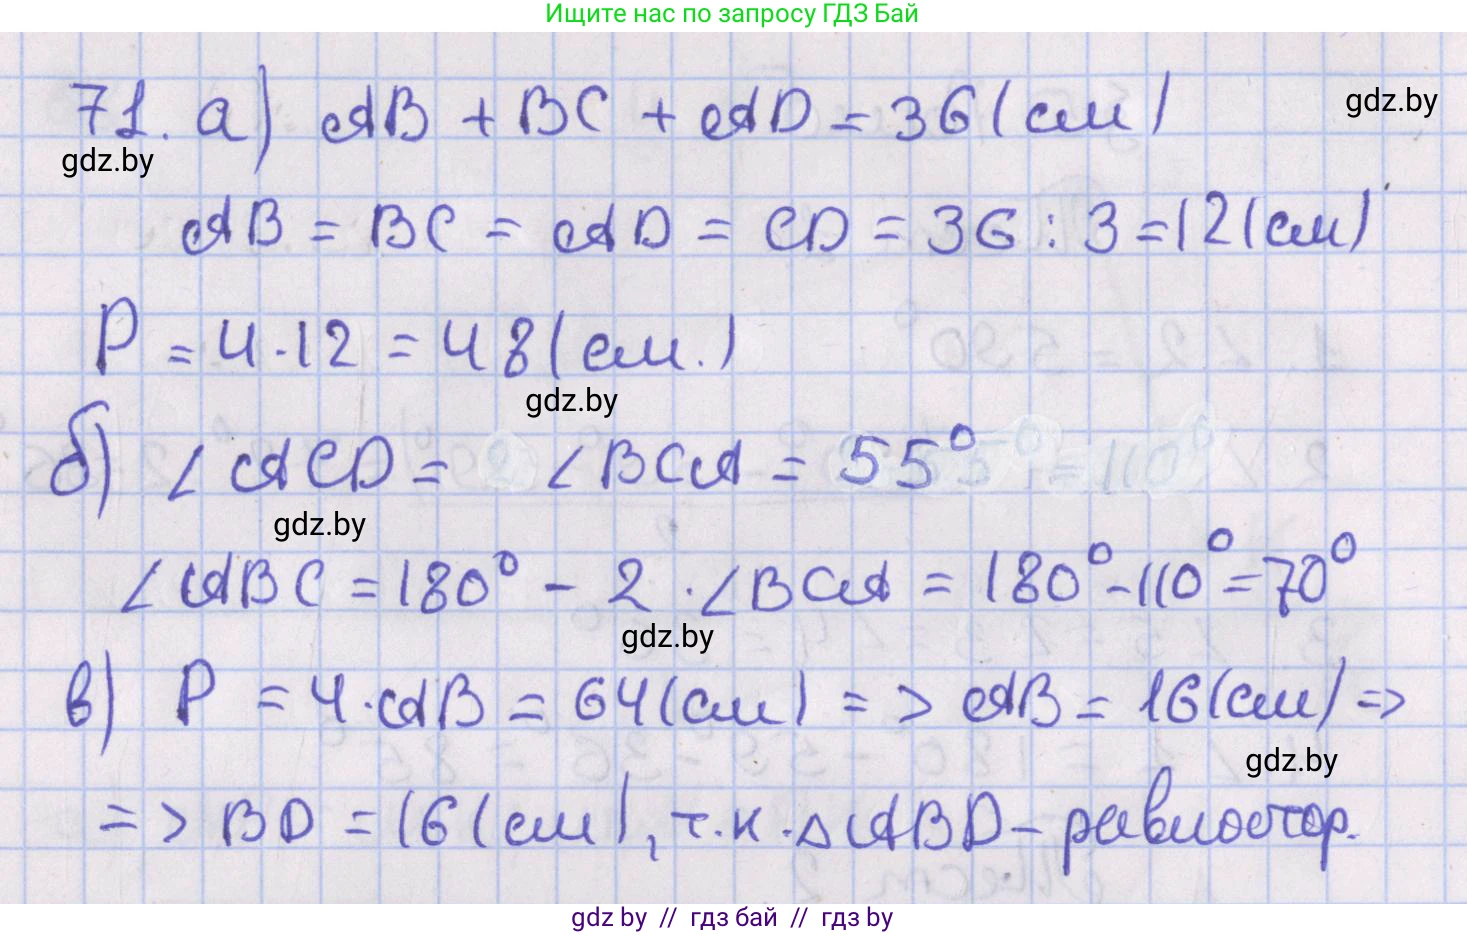 Ищите нас по запросу ГДЗ Бай
71. а) AB + BC + AD = 36 (см)
gdz.by
gdz.by
AB = BC = AD = CD = 36 : 3 = 12 (см)
P = 4 · 12 = 48 (см.)
gdz.by
б) ∠ ACD = ∠ BCA = 55°
gdz.by
∠ ABC = 180° - 2 · ∠ BCA = 180° - 110° = 70°
gdz.by
в) P = 4 · AB = 64 (см) => AB = 16 (см) =>
gdz.by
=> BD = 16 (см), т.к. △ ABD - равностор.
gdz by // гдз бай // гдз by